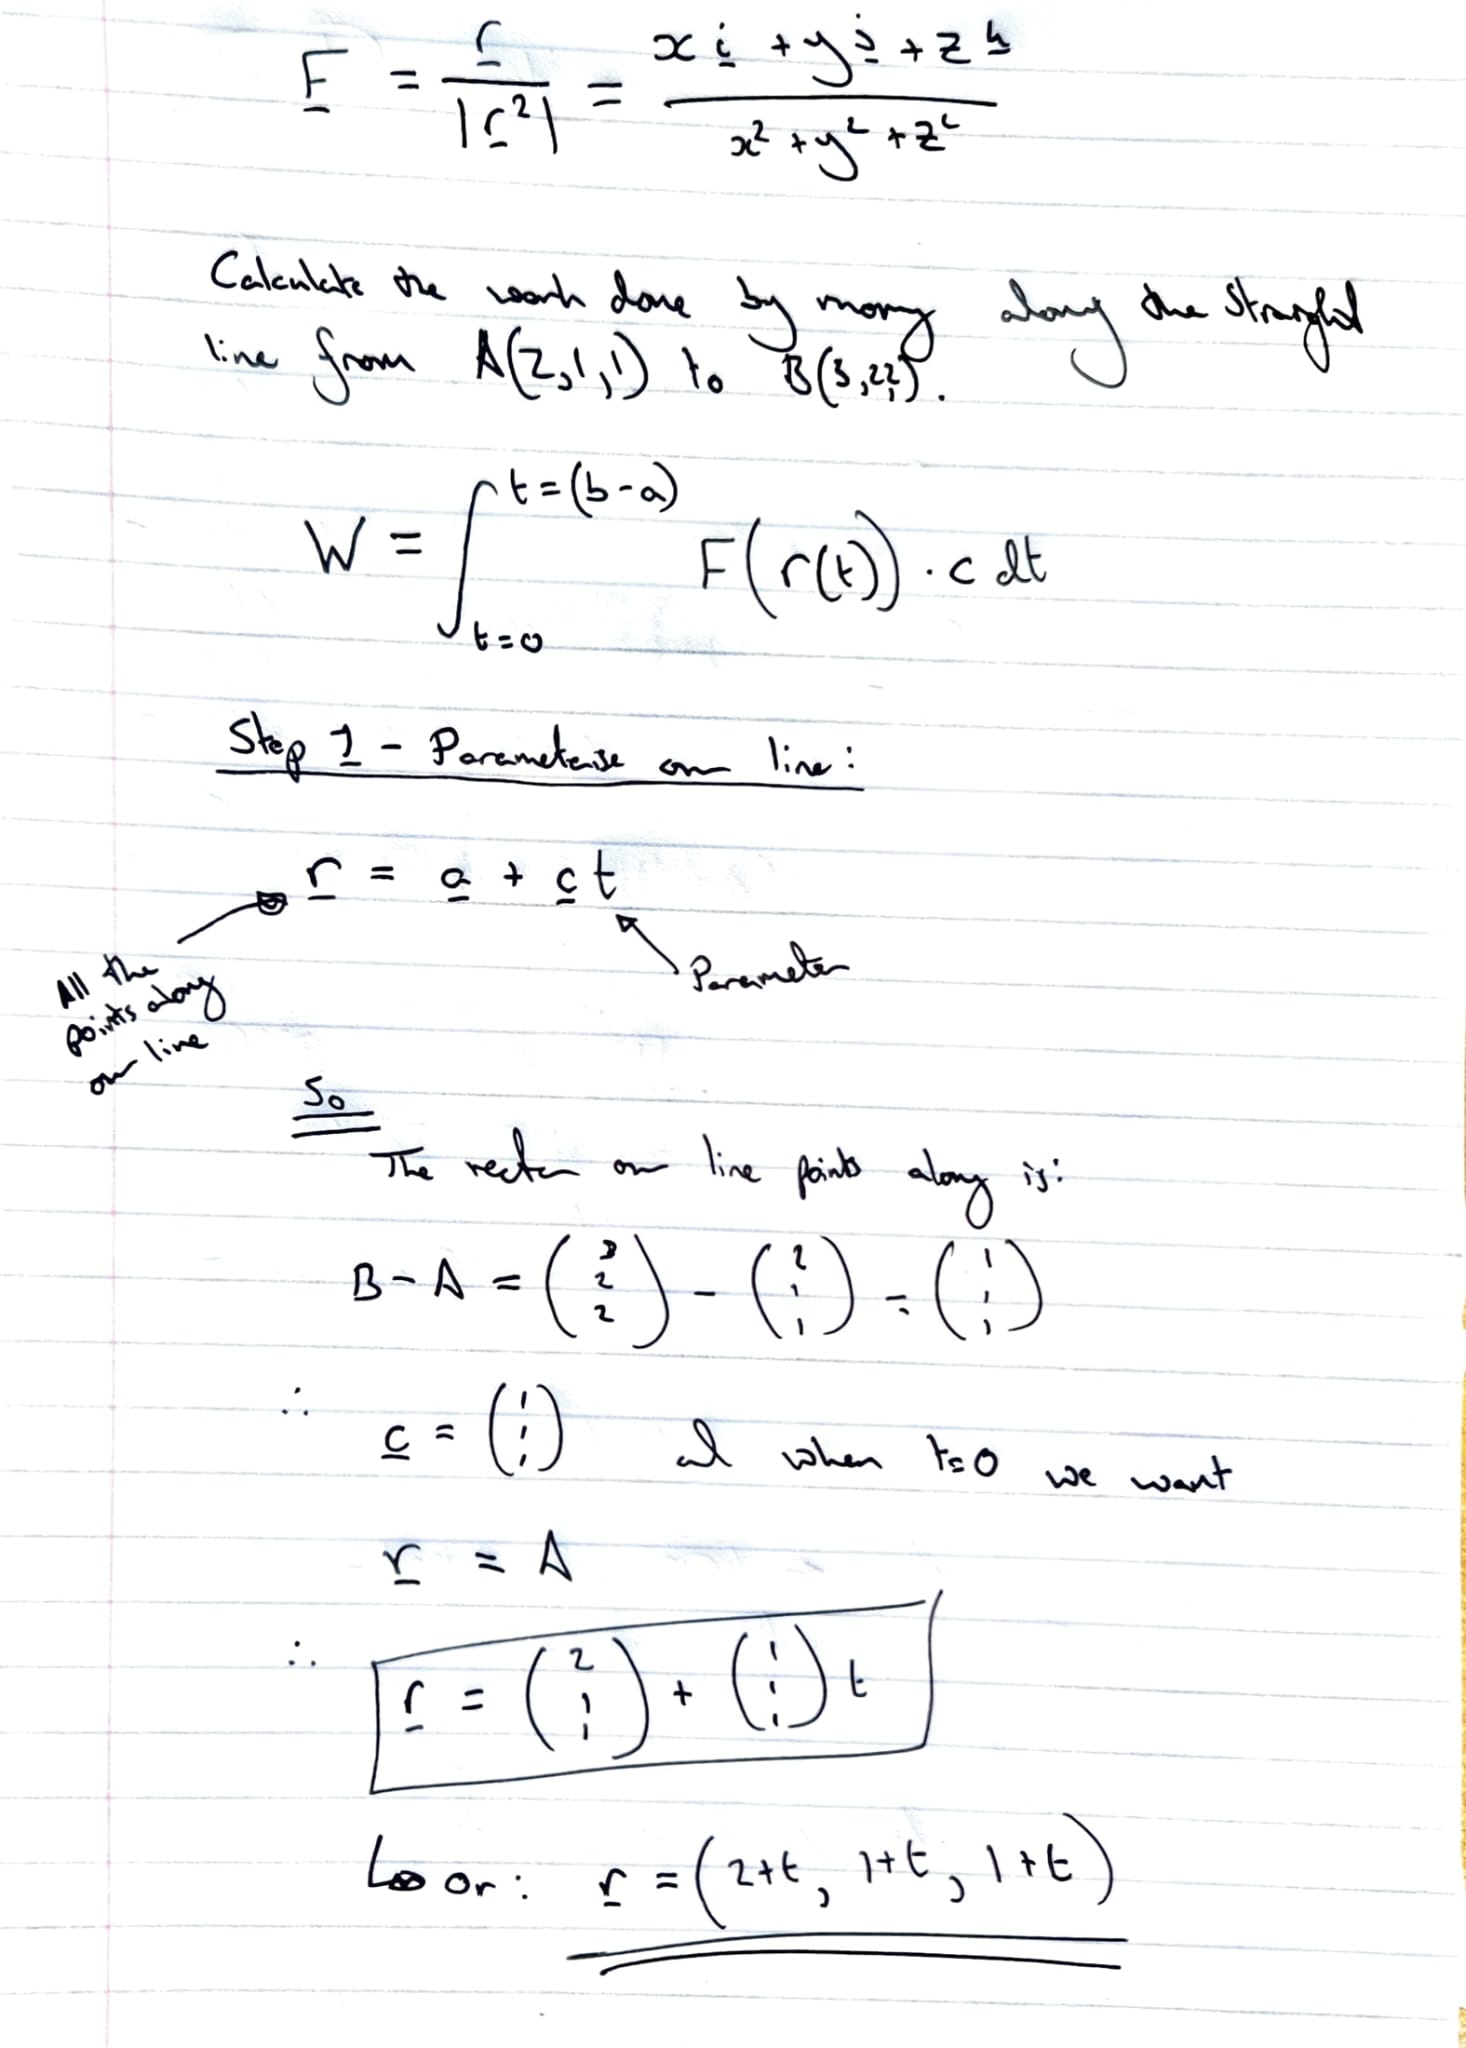 F = r / |r²| = (x i + y j + z k) / (x² + y² + z²)
Calculate the work done by moving along the straight
line from A(2,1,1) to B(3,2,2).
W = ∫_{t=0}^{t=(b-a)} F(r(t)) · c dt
Step 1 - Parameterise our line:
r = a + c t
Parameter
All the
points along
our line
So
The vector our line points along is:
B - A = (3 2 2) - (2 1 1) = (1 1 1)
∴ c = (1 1 1) and when t=0 we want
r = A
∴ r = (2 1 1) + (1 1 1) t
or: r = (2+t, 1+t, 1+t)